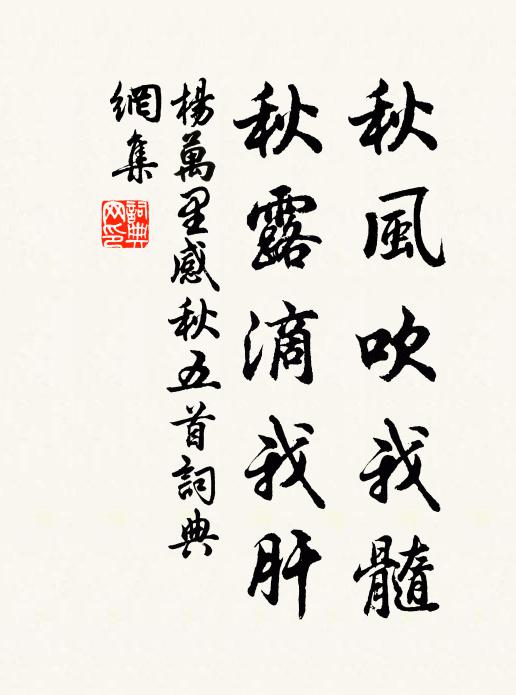 秋風吹我髓
秋露滴我肝
楊萬里感秋五首詞典
網集
詞典
网印